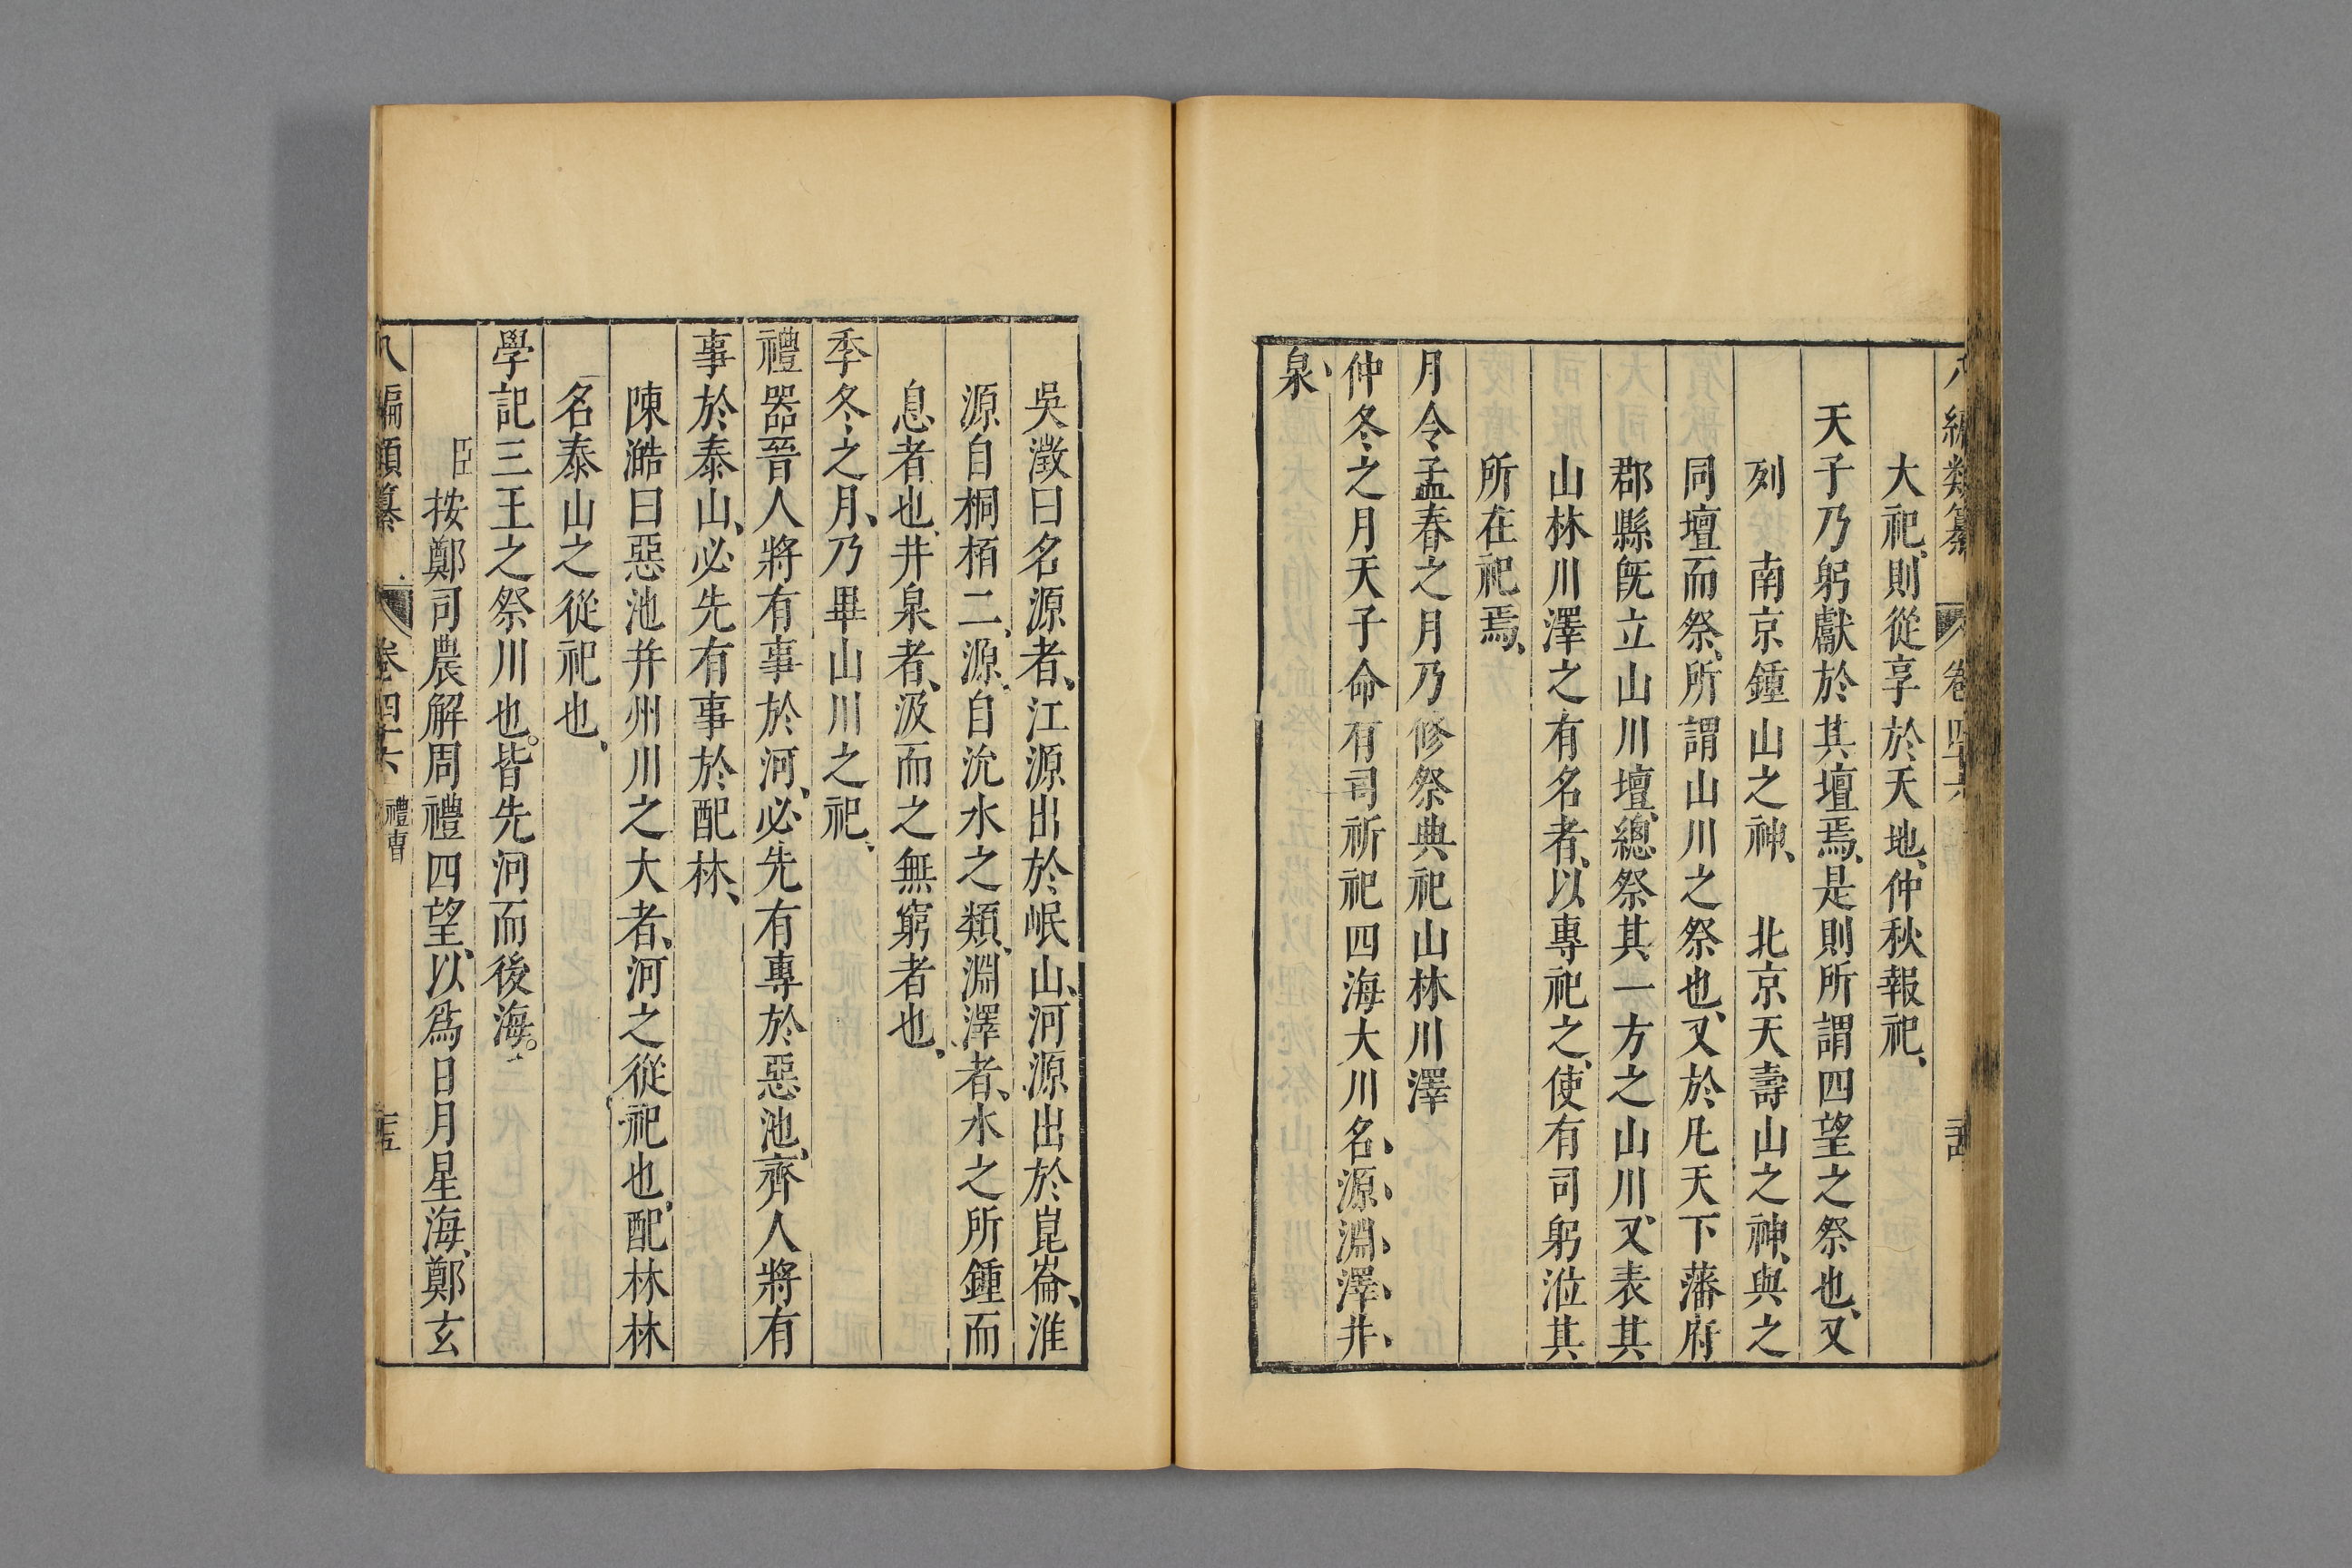 八編類纂 卷四十六
大祀、則從享於天地、仲秋報祀、
天子乃躬獻於其壇焉、是則所謂四望之祭也、又
列 南京鍾山之神、 北京天壽山之神、與之
同壇而祭、所謂山川之祭也、又於凡天下藩府
郡縣旣立山川壇、總祭其一方之山川、又表其
山林川澤之有名者、以專祀之、使有司躬涖其
所在祀焉、
月令孟春之月乃修祭典祀山林川澤
仲冬之月天子命有司祈祀四海大川名、源、淵、澤、井、
泉、
吳澂曰名源者、江源出於岷山、河源出於崑崙、淮
源自桐栢二、源、自沇水之類、淵澤者、水之所鍾而
息者也、井泉者、汲而之無窮者也、
季冬之月、乃畢山川之祀、
禮器晉人將有事於河、必先有專於惡池、齊人將有
事於泰山、必先有事於配林、
陳澔曰惡池幷州川之大者、河之從祀也、配林林
名泰山之從祀也、
學記三王之祭川也。皆先河而後海。
臣按鄭司農解周禮四望、以爲日月星海、鄭玄
八編類纂 卷四十六 禮曹